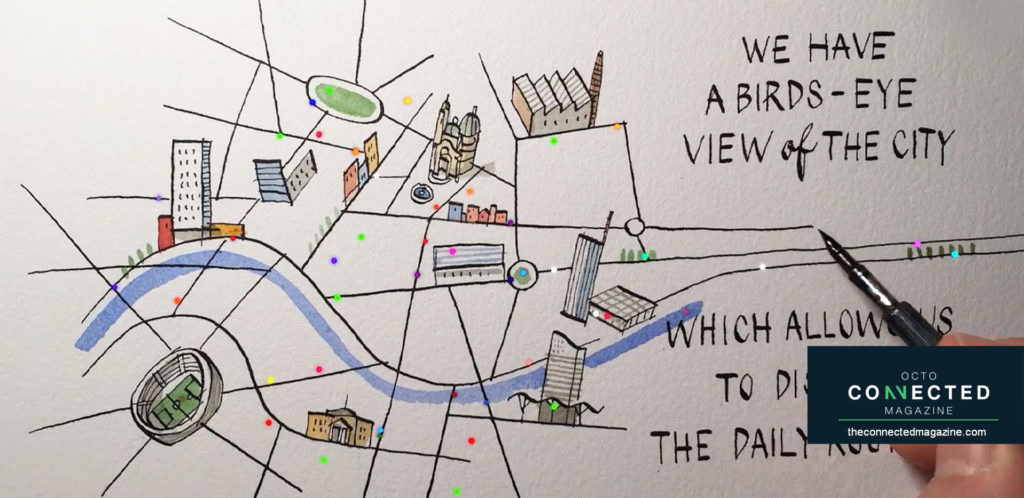 WE HAVE
A BIRDS-EYE
VIEW of THE CITY
WHICH ALLOWS US
TO
THE DAILY
OCTO
CONNECTED
MAGAZINE
theconnectedmagazine.com